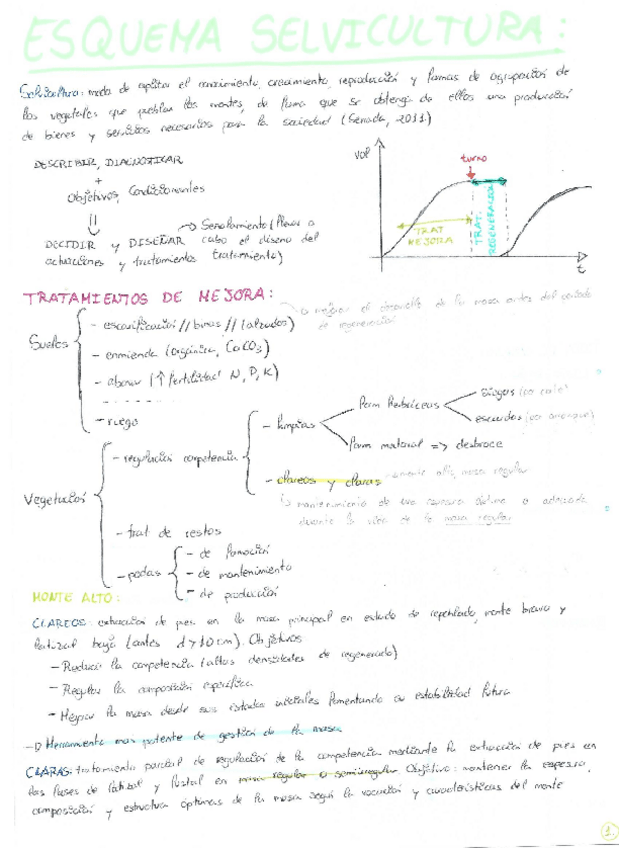 ESQUEMA SELVICULTURA:
Selvicultura: modo de aplicar el conocimiento, crecimiento, reproducción y formas de agrupación de
los vegetales que pueblan los montes, de forma que se obtenga de ellos una producción
de bienes y servicios necesarios para la sociedad (Serrada, 2011.)
DESCRIBIR, DIAGNOSTICAR
+
Objetivos, Condicionantes
DECIDIR y DISEÑAR → Señalamiento (llevar a
actuaciones y tratamientos cabo el diseño del
tratamiento)
vol
turno
TRAT
MEJORA
TRAT.
REGENERACIÓN
t
TRATAMIENTOS DE MEJORA:
↳ mejorar el desarrollo de la masa antes del periodo
de regeneración
Suelos
- escarificación // // (alzados)
- enmienda (orgánica, CaCO3)
- abonar (↑ fertilidad N, P, K)
- riego
Vegetación
- regulación competencia
- limpias
Form herbáceas
Siegas
escardas
Form matorral => desbroce
- clareos y claras
monte alto, masa regular
↳ mantenimiento de una espesura óptima o adecuada
durante la vida de la masa regular
- trat de restos
- podas
- de formación
- de mantenimiento
- de producción
MONTE ALTO:
CLAREOS: extracción de pies en la masa principal en estado de repoblado, monte bravo y
latizal bajo (antes d>10cm). Objetivos
- Reducir la competencia (altas densidades de regenerado)
- Regular la composición específica
- Mejorar la masa desde sus estados iniciales fomentando su estabilidad futura
→ Herramienta mas potente de gestión de la masa
CLARAS: tratamiento parcial de regulación de la competencia mediante la extracción de pies en
las fases de latizal y fustal en masa regular o semirregular Objetivo: mantener la espesura,
composición y estructura óptimas de la masa según la vocación y características del monte
1.